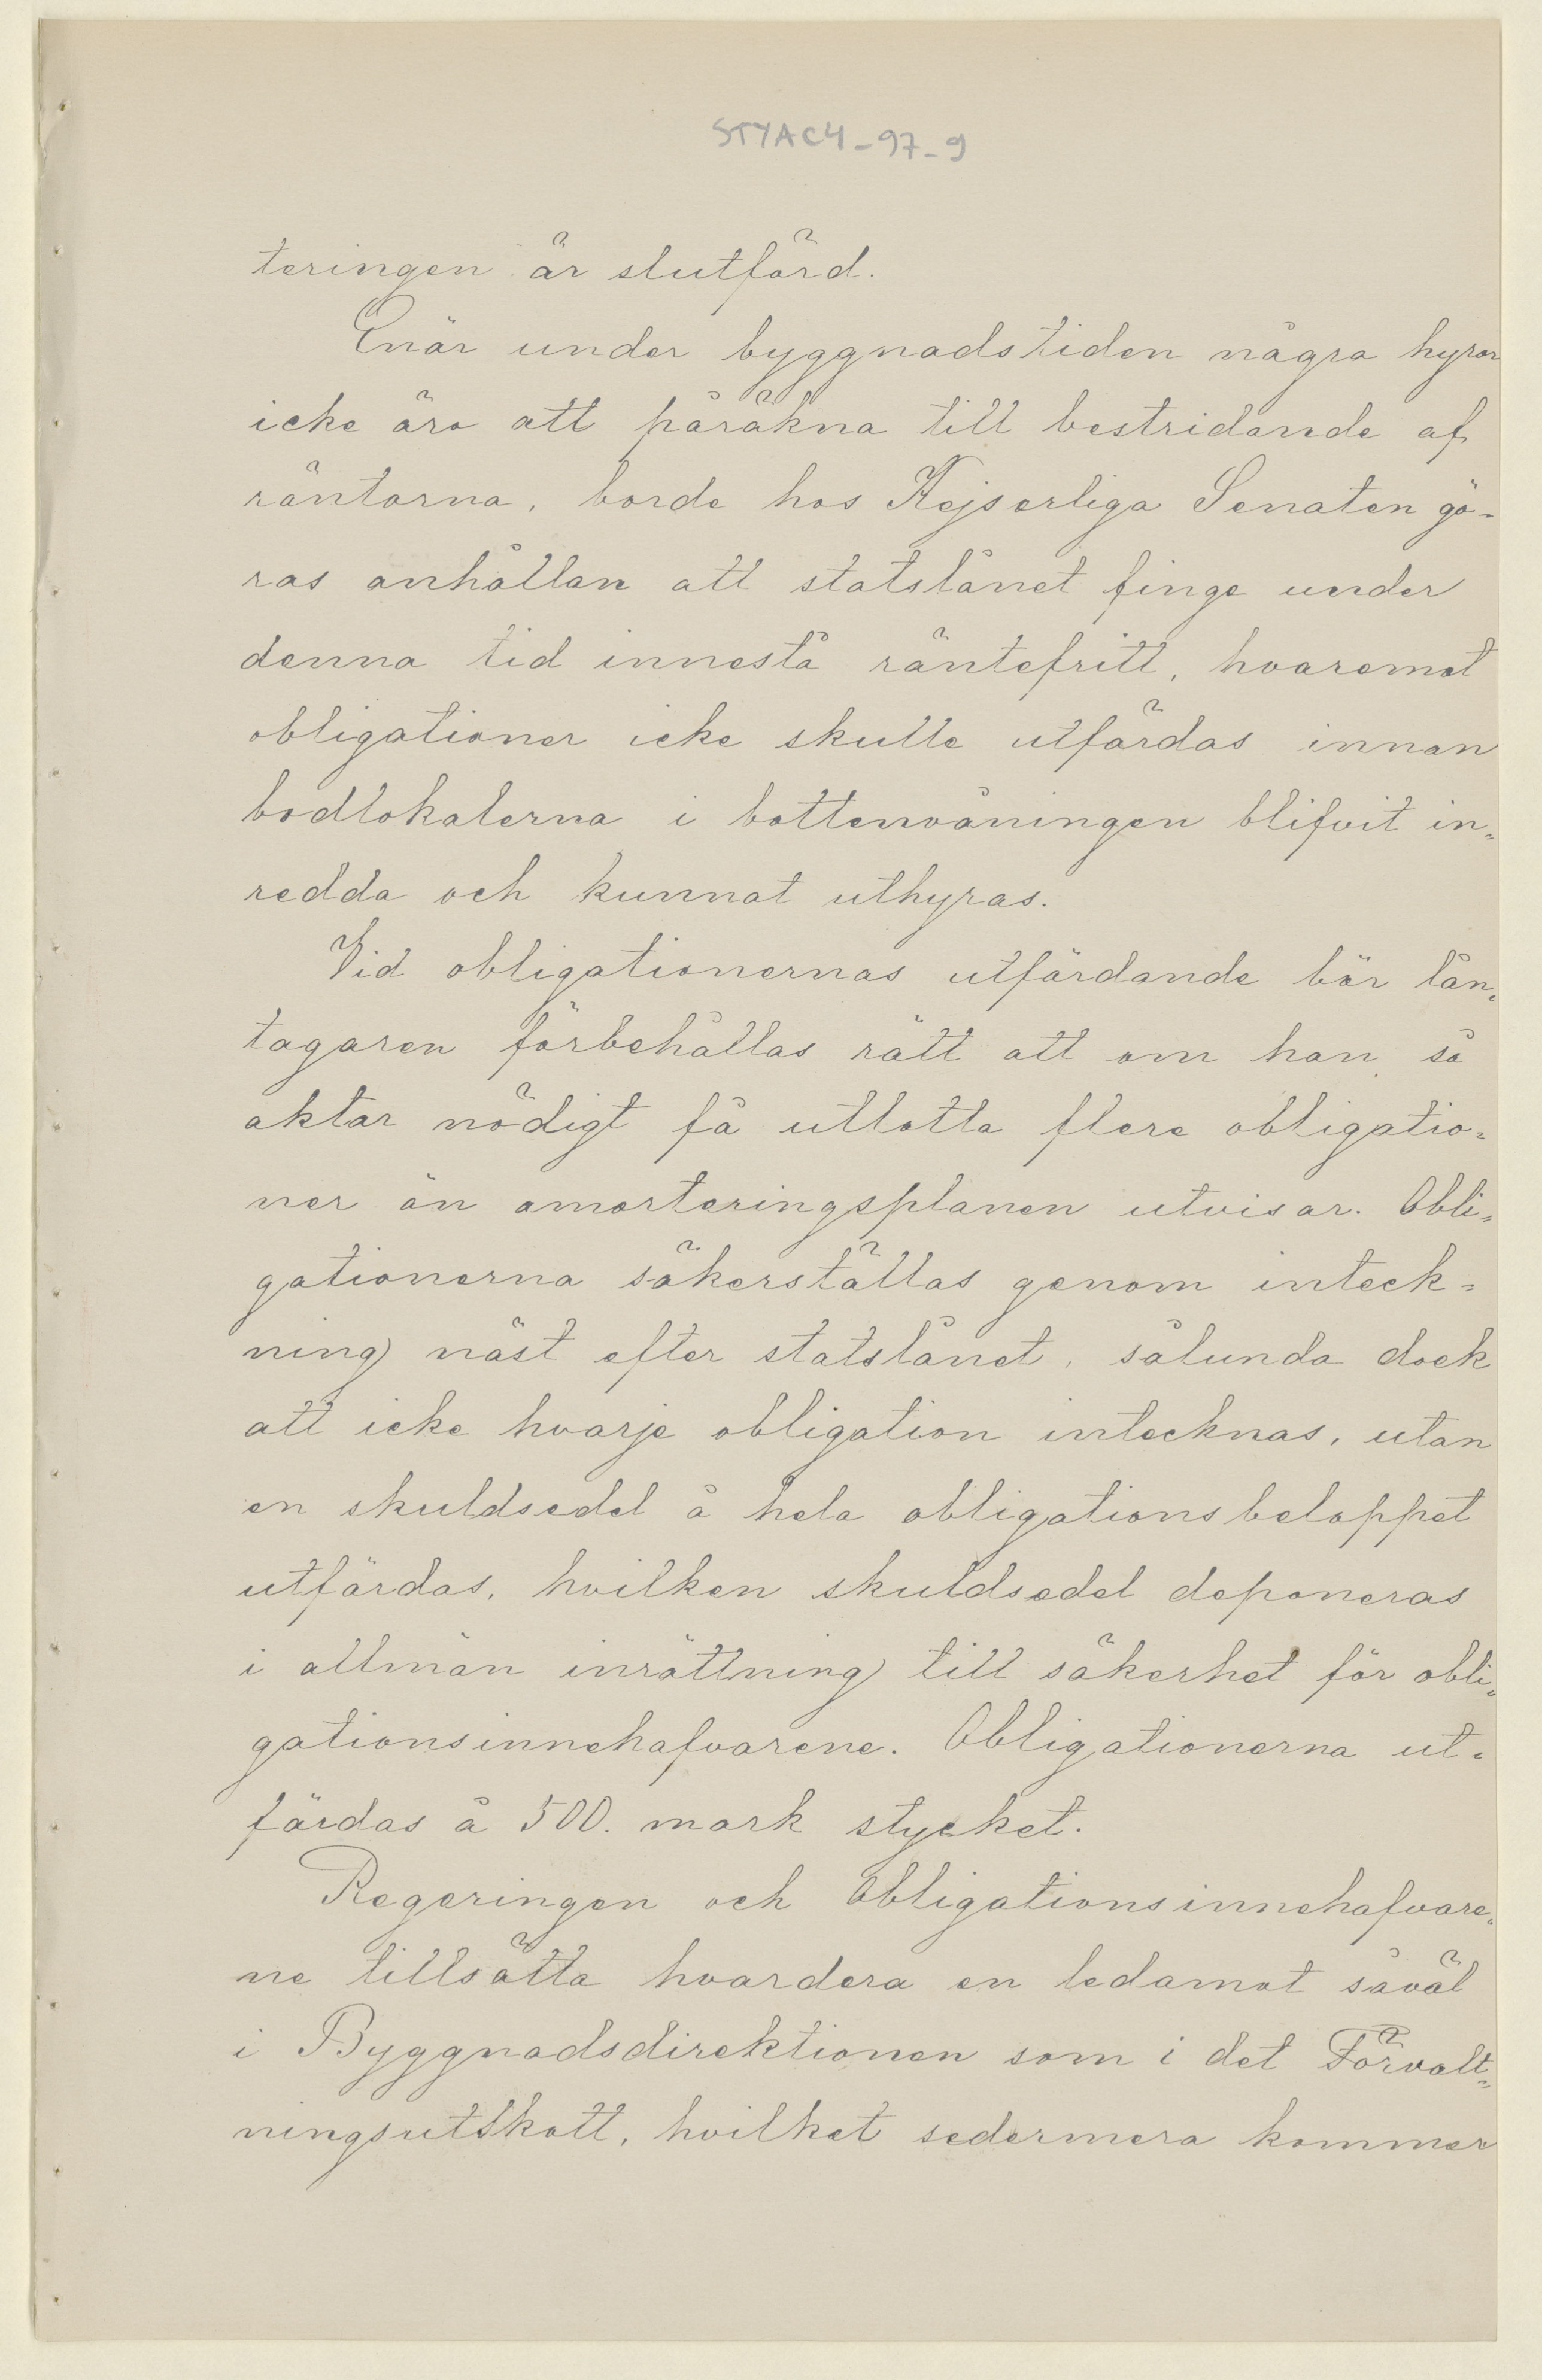 STYAC4-97-9
teringen är slutförd.
Enär under byggnadstiden några hyror
icke äro att påräkna till bestridande af
räntorna, borde hos Kejserliga Senaten gö-
ras anhållan att statslånet finge under
denna tid innestå räntefritt, hvaremot
obligationer icke skulle utfärdas innan
bodlokalerna i bottenvåningen blifvit in-
redda och kunnat uthyras.
Vid obligationernas utfärdande bör lån-
tagaren förbehållas rätt att om han så
aktar nödigt få utlotta flere obligatio-
ner än amorteringsplanen utvisar. Obli-
gationerna säkerställas genom inteck-
ning näst efter statslånet, sålunda dock
att icke hvarje obligation intecknas, utan
en skuldsedel å hela obligationsbeloppet
utfärdas, hvilken skuldsedel deponeras
i allmän inrättning till säkerhet för obli-
gationsinnehafvarene. Obligationerna ut-
färdas à 500. mark stycket.
Regeringen och Obligationsinnehafvare-
ne tillsätta hvardera en ledamot såväl
i Byggnadsdirektionen som i det Förvalt-
ningsutskott, hvilket sedermera kommer